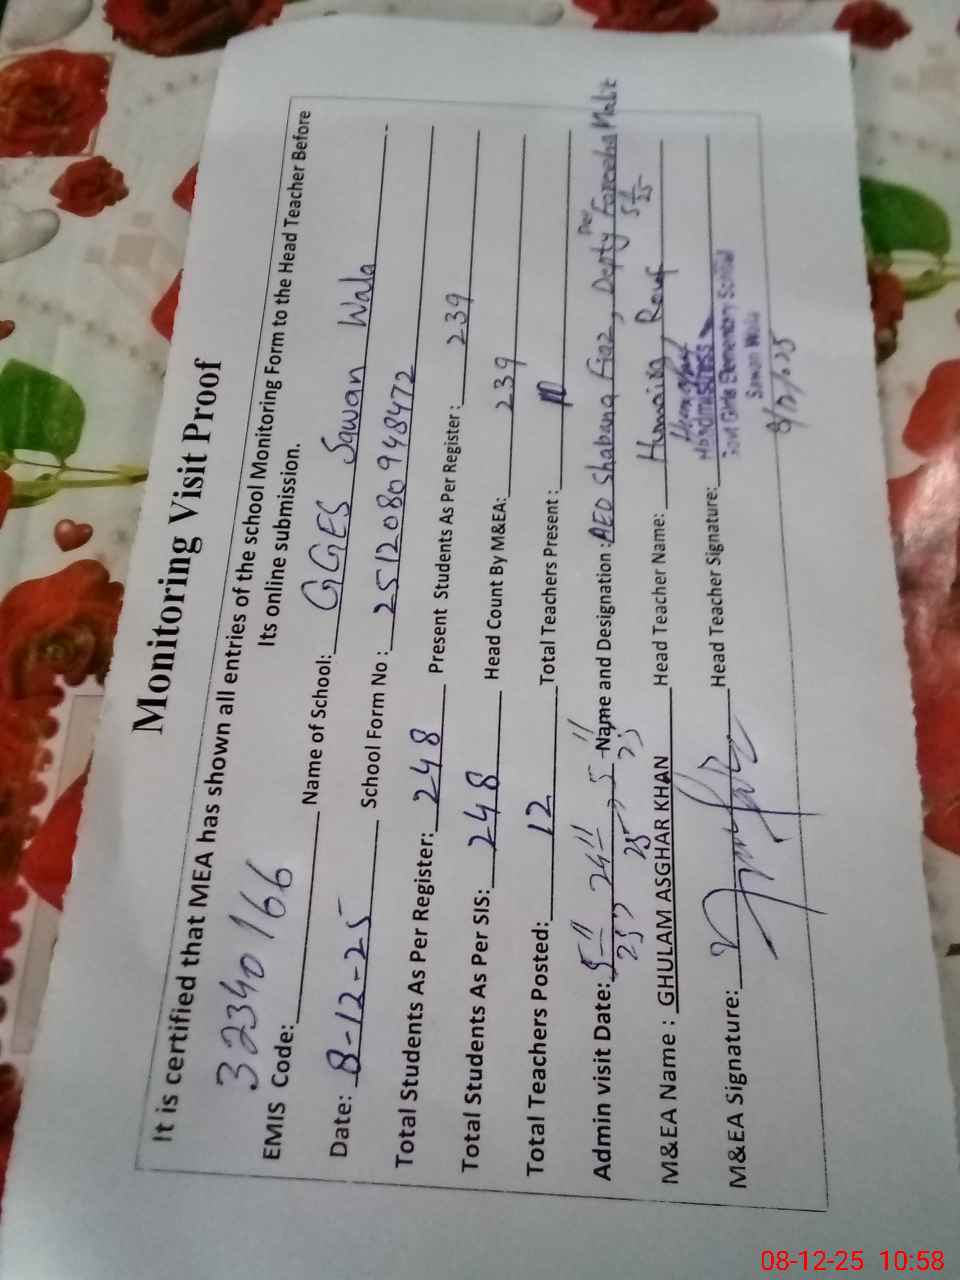 Monitoring Visit Proof
It is certified that MEA has shown all entries of the school Monitoring Form to the Head Teacher Before
Its online submission.
EMIS Code: 32340166 Name of School: GGES Sawan Wala
Date: 8-12-25 School Form No : 2512080948472
Total Students As Per Register: 248 Present Students As Per Register: 239
Total Students As Per SIS: 248 Head Count By M&EA: 239
Total Teachers Posted: 12 Total Teachers Present :
Admin visit Date: 5-11 25, 24-11 25, 5-11 25 Name and Designation : AEO Shabana Fiaz, Depty
M&EA Name : GHULAM ASGHAR KHAN Head Teacher Name: Humaira Rouf
M&EA Signature: Head Teacher Signature:
Headmistress
Govt Girls Elementary School
Sawan Wala
8/12/2025
08-12-25 10:58